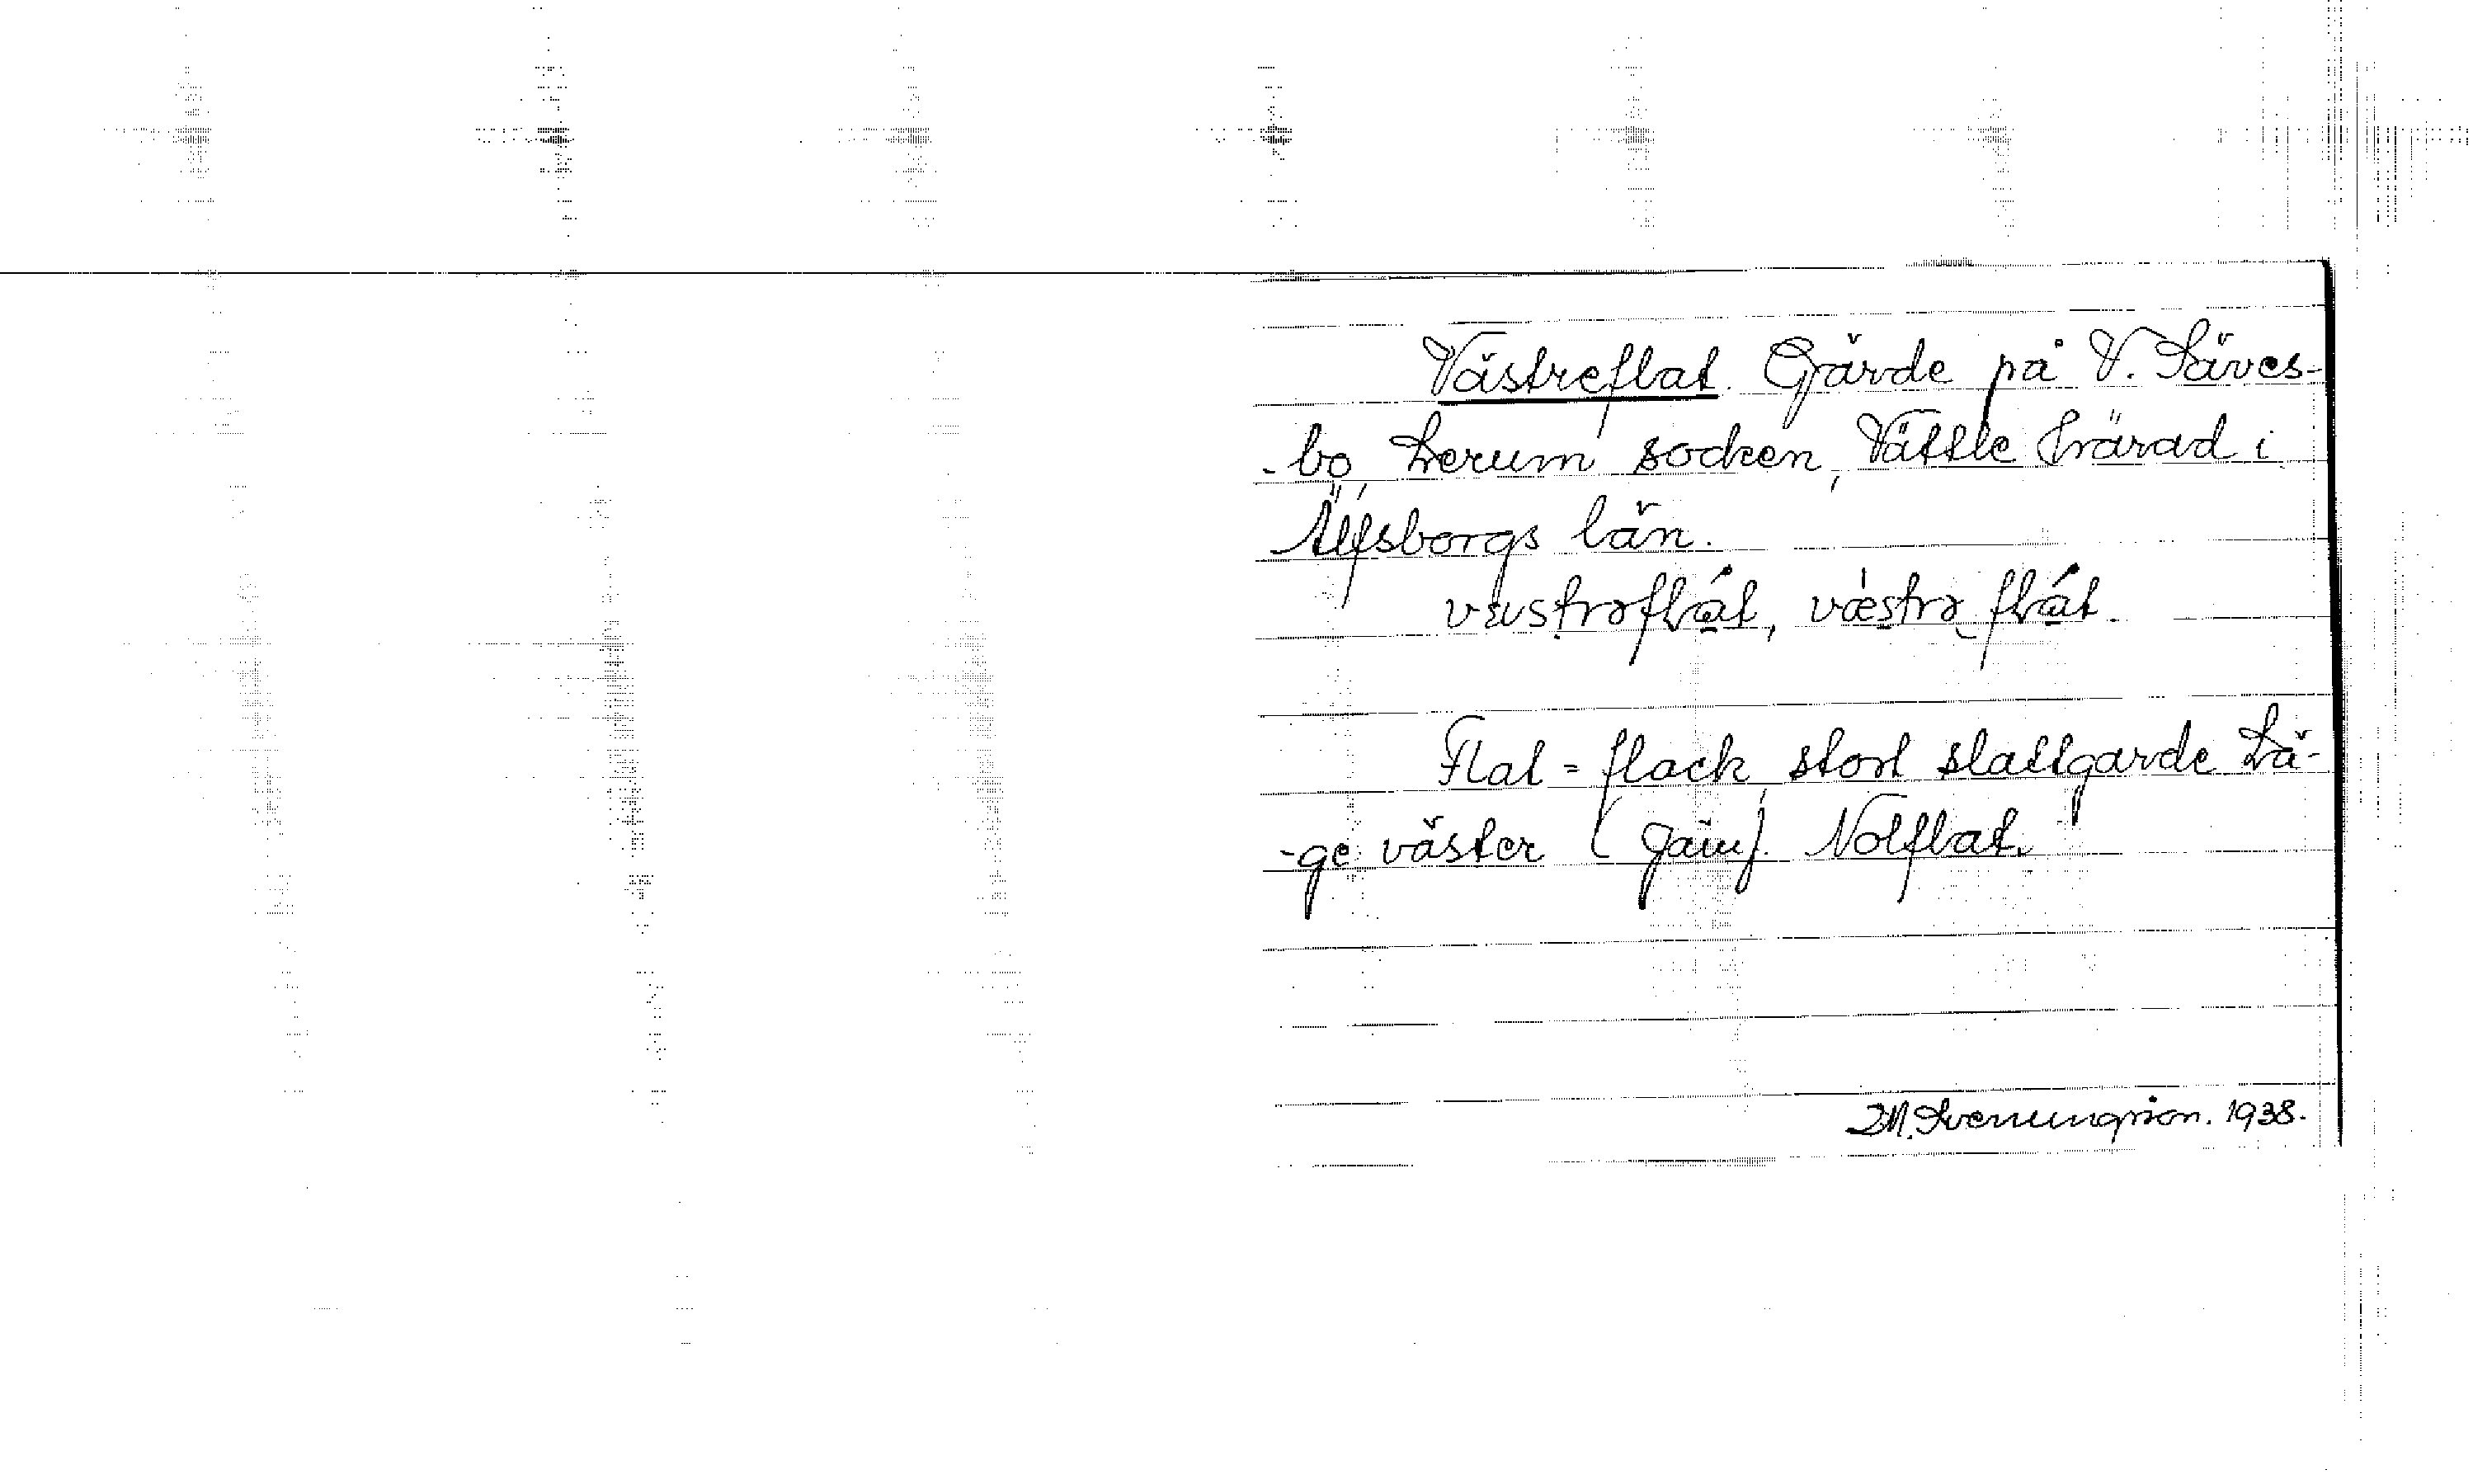 Västreflat. Gärde på V. Säves-
-bo, Lerum socken, Vättle härad i
Älfsborgs län.
Flat = flack stort slättgärde Lä-
-ge väster (jäm). Nolflat.
M. Svenungsson. 1938.